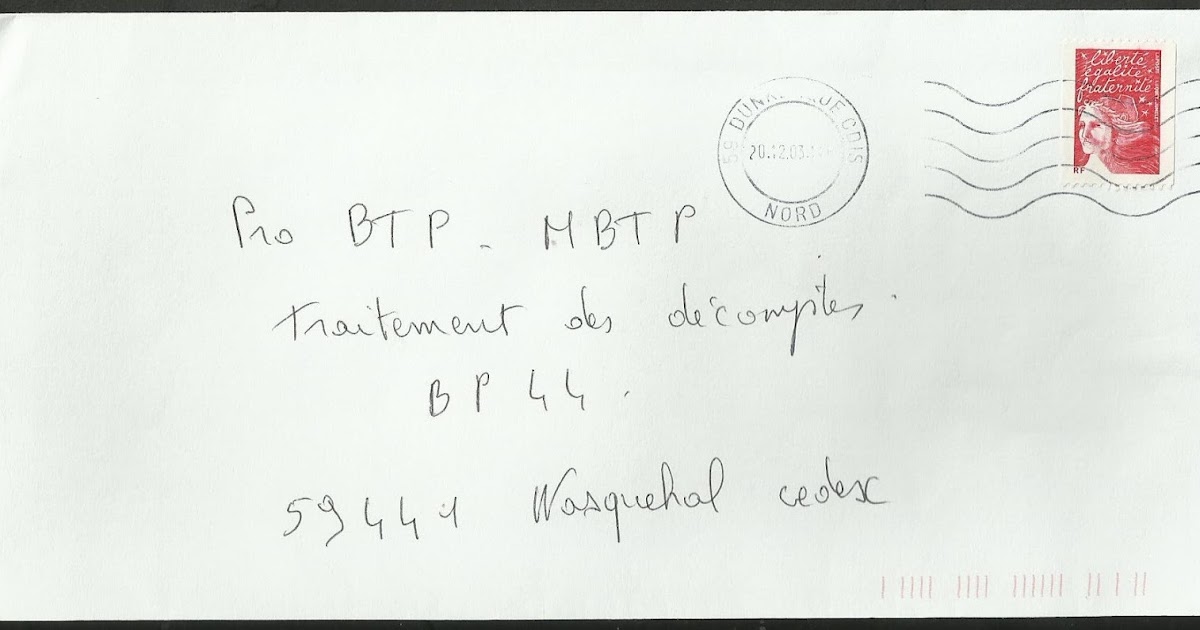 liberté
égalité
fraternité
RF
59 DUNKERQUE CDIS
20.12.03
NORD
Pro BTP - MBTP
traitement des décomptes.
BP 44.
59441 Wasquehal cedex